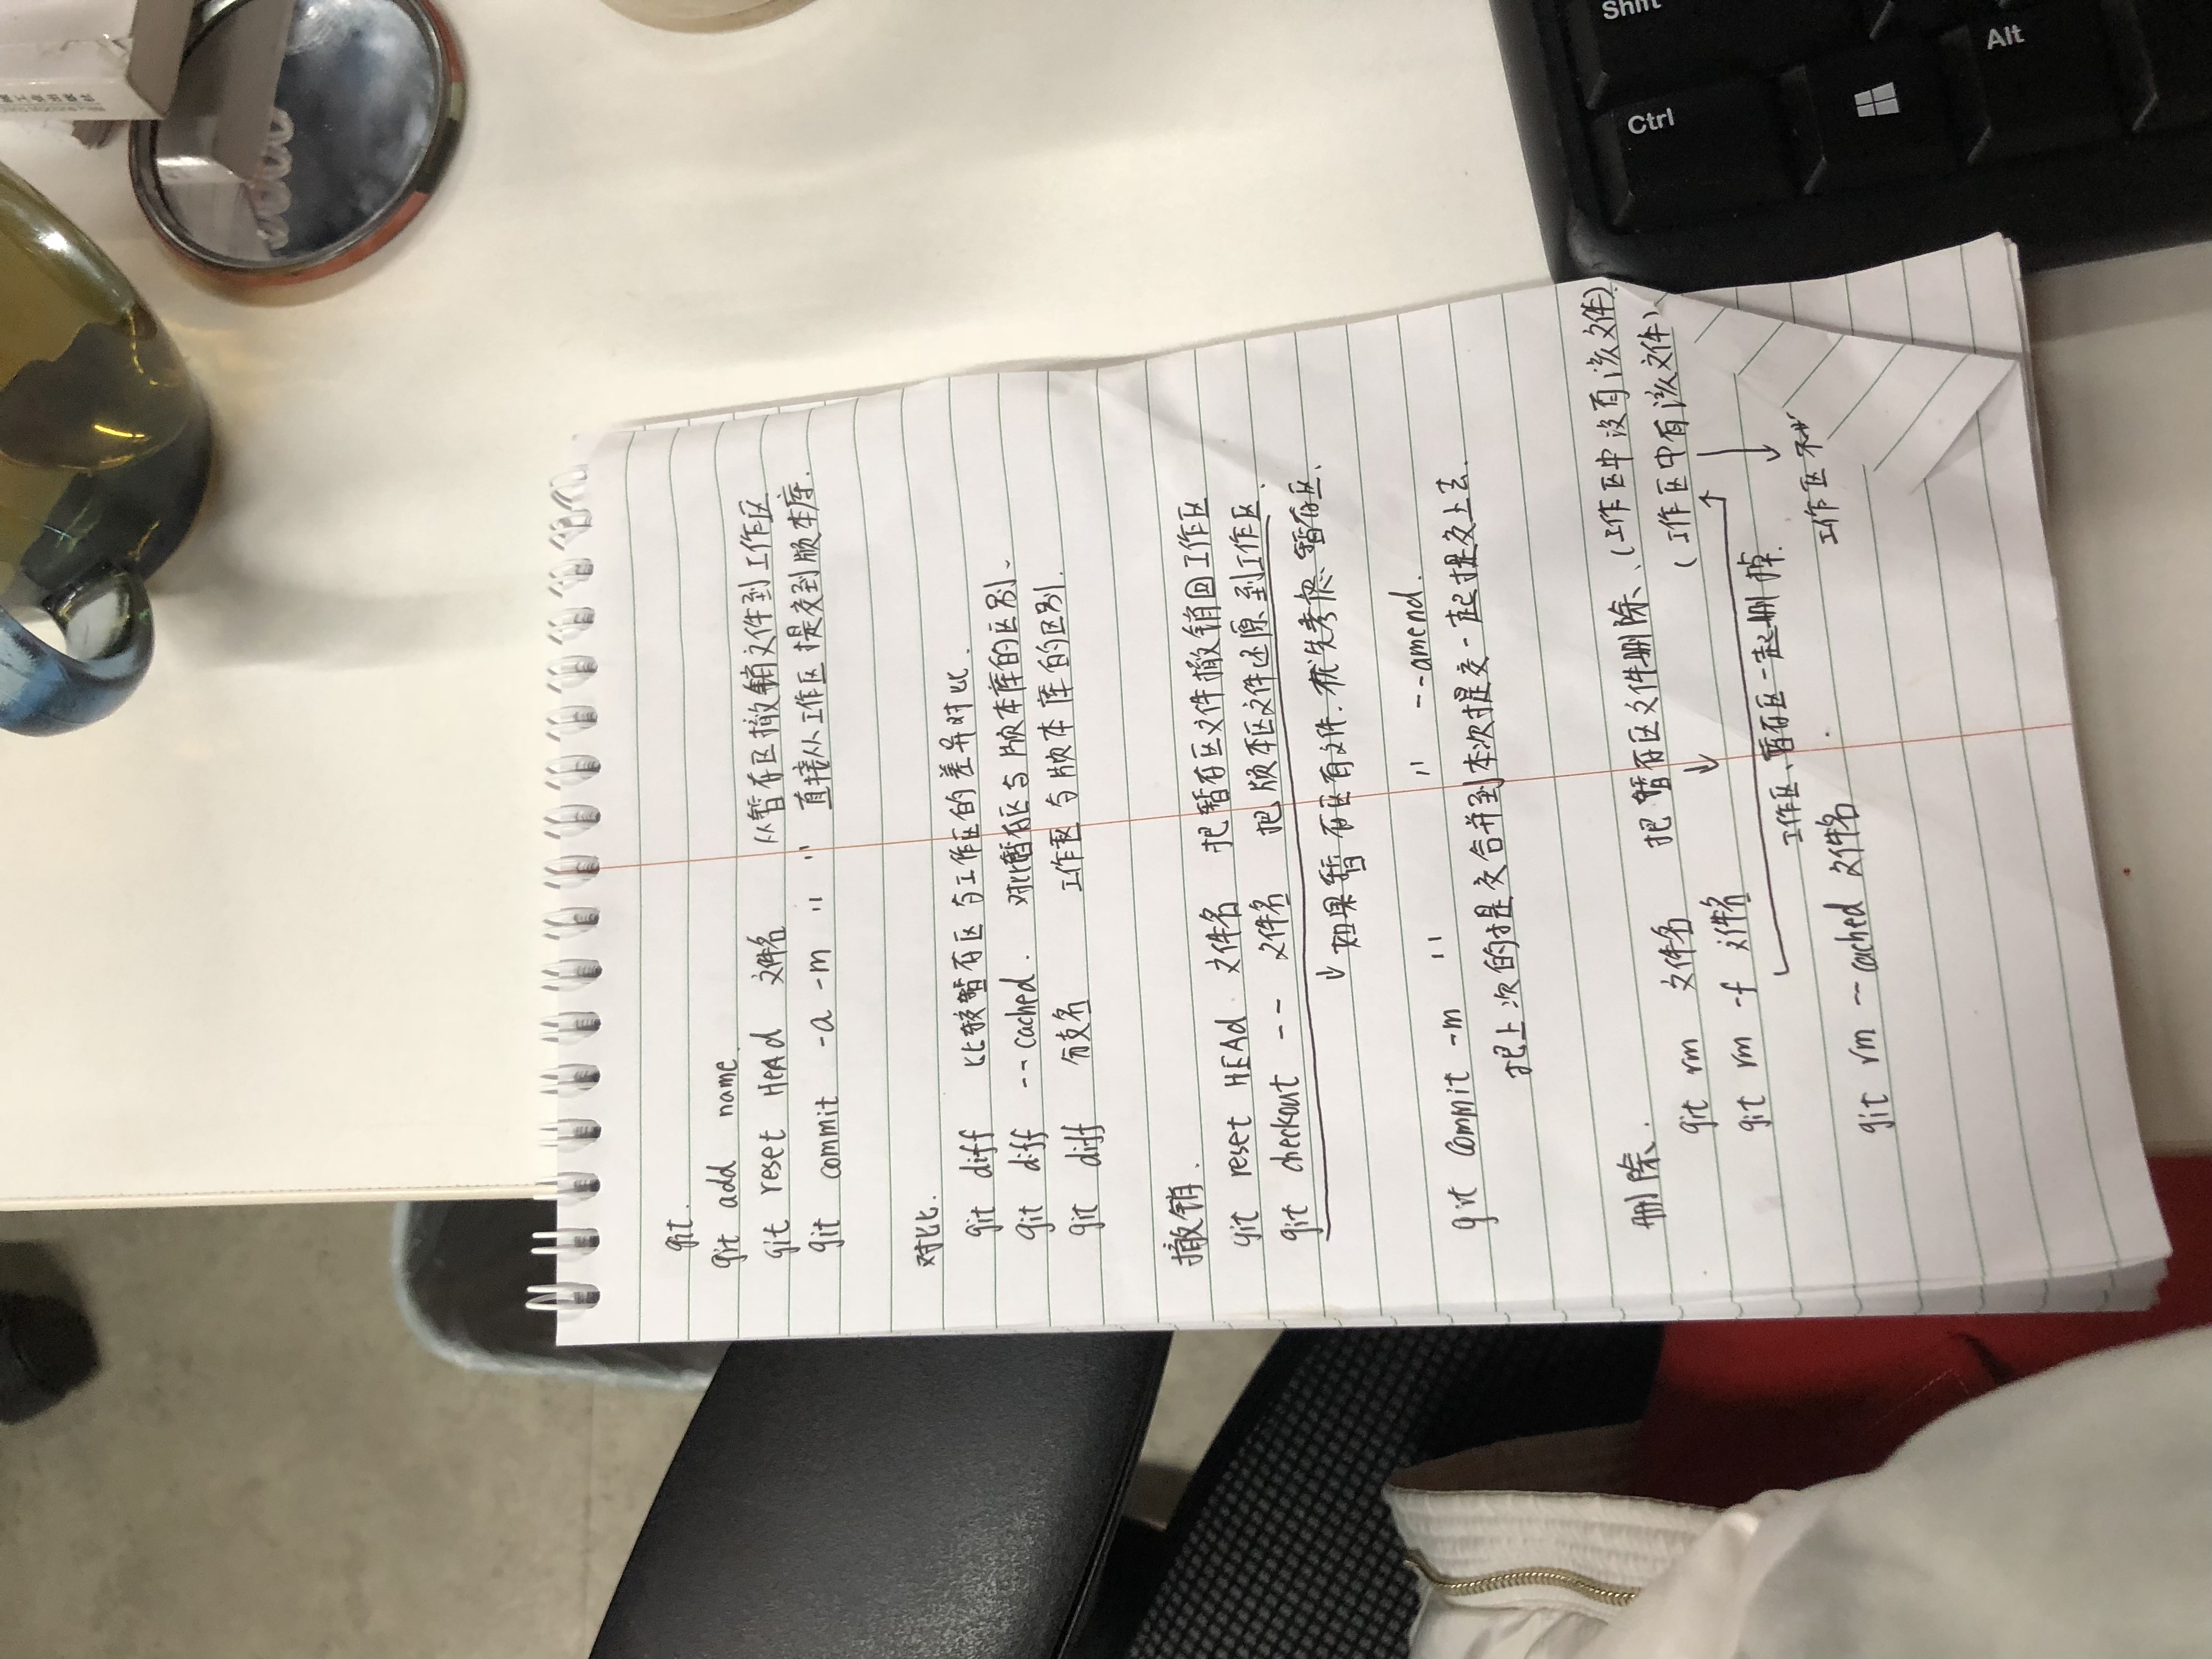 git.
git add name.
git reset HEAd 文件名 从暂存区撤销文件到工作区
git commit -a -m " " 直接从工作区提交到版本库.
对比.
git diff 比较暂存区与工作区的差异对比.
git diff --cached. 对比暂存区与版本库的区别.
git diff 分支名 工作区与版本库的区别.
撤销.
git reset HEAd 文件名 把暂存区文件撤销回工作区
git checkout -- 文件名 把版本区文件还原到工作区.
↓ 如果暂存区有文件.优先考虑暂存区.
git commit -m " " --amend.
把上次的提交合并到本次提交一起提交上去.
删除.
git rm 文件名 把暂存区文件删除、(工作区中没有该文件)
(工作区中有该文件)
git rm -f 文件名
工作区、暂存区一起删掉.
工作区不
git rm --cached 文件名
Ctrl
Shift
Alt